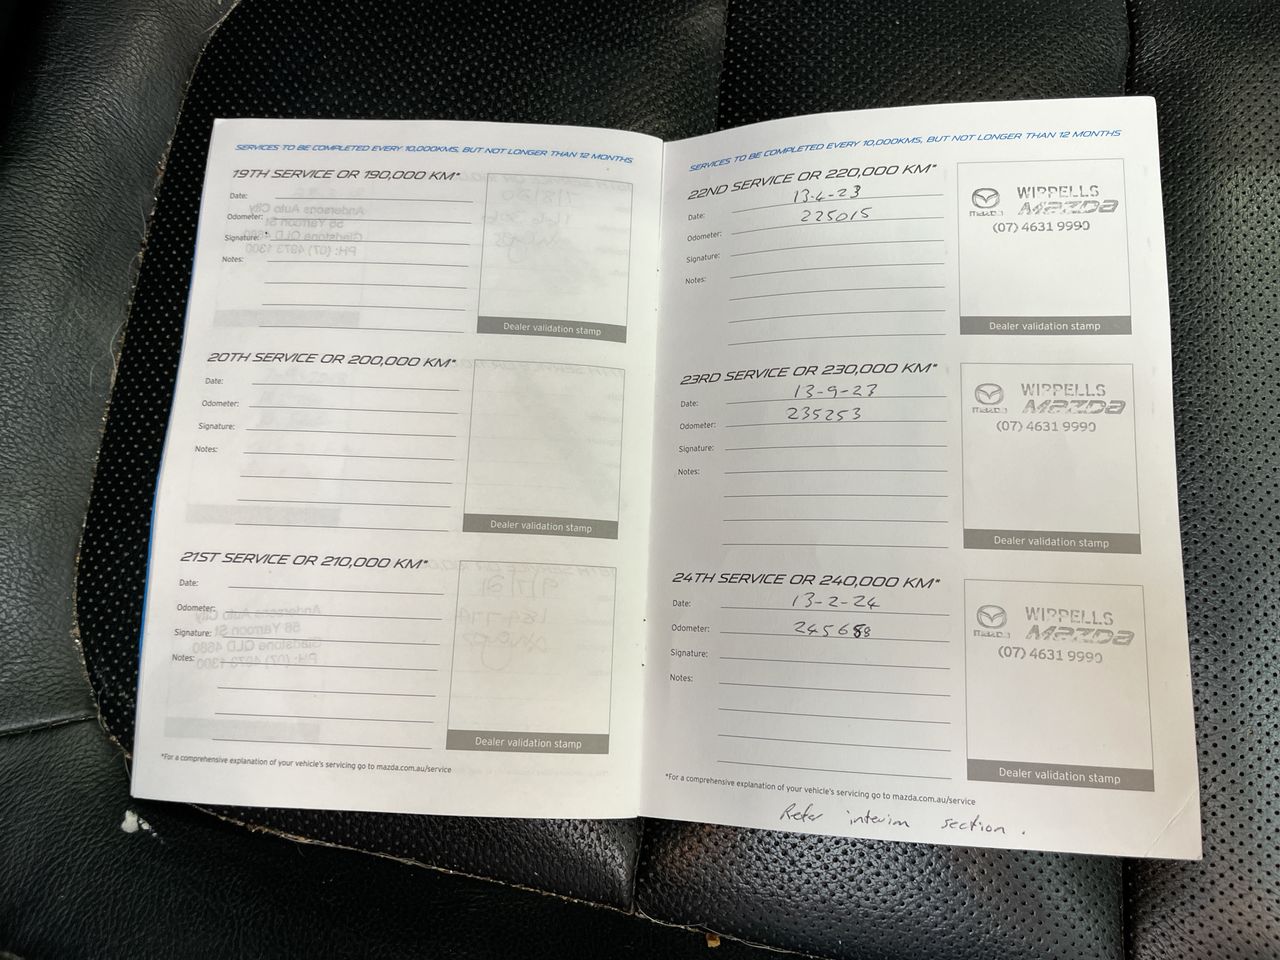 SERVICES TO BE COMPLETED EVERY 10,000KMS, BUT NOT LONGER THAN 12 MONTHS
19TH SERVICE OR 190,000 KM*
Date:
Odometer:
Signature:
Notes:
Dealer validation stamp
20TH SERVICE OR 200,000 KM*
Date:
Odometer:
Signature:
Notes:
Dealer validation stamp
21ST SERVICE OR 210,000 KM*
Date:
Odometer:
Signature:
Notes:
Dealer validation stamp
*For a comprehensive explanation of your vehicle's servicing go to mazda.com.au/service
SERVICES TO BE COMPLETED EVERY 10,000KMS, BUT NOT LONGER THAN 12 MONTHS
22ND SERVICE OR 220,000 KM*
Date: 13-4-23
Odometer: 225015
Signature:
Notes:
WIPPELLS
mazda Mazda
(07) 4631 9990
Dealer validation stamp
23RD SERVICE OR 230,000 KM*
Date: 13-9-23
Odometer: 235253
Signature:
Notes:
WIPPELLS
mazda Mazda
(07) 4631 9990
Dealer validation stamp
24TH SERVICE OR 240,000 KM*
Date: 13-2-24
Odometer: 245688
Signature:
Notes:
WIPPELLS
mazda Mazda
(07) 4631 9990
Dealer validation stamp
*For a comprehensive explanation of your vehicle's servicing go to mazda.com.au/service
Refer interim section.